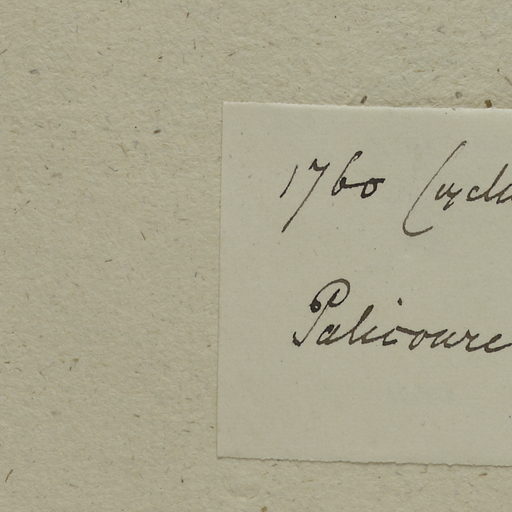 1760 Cycla
Palicoure